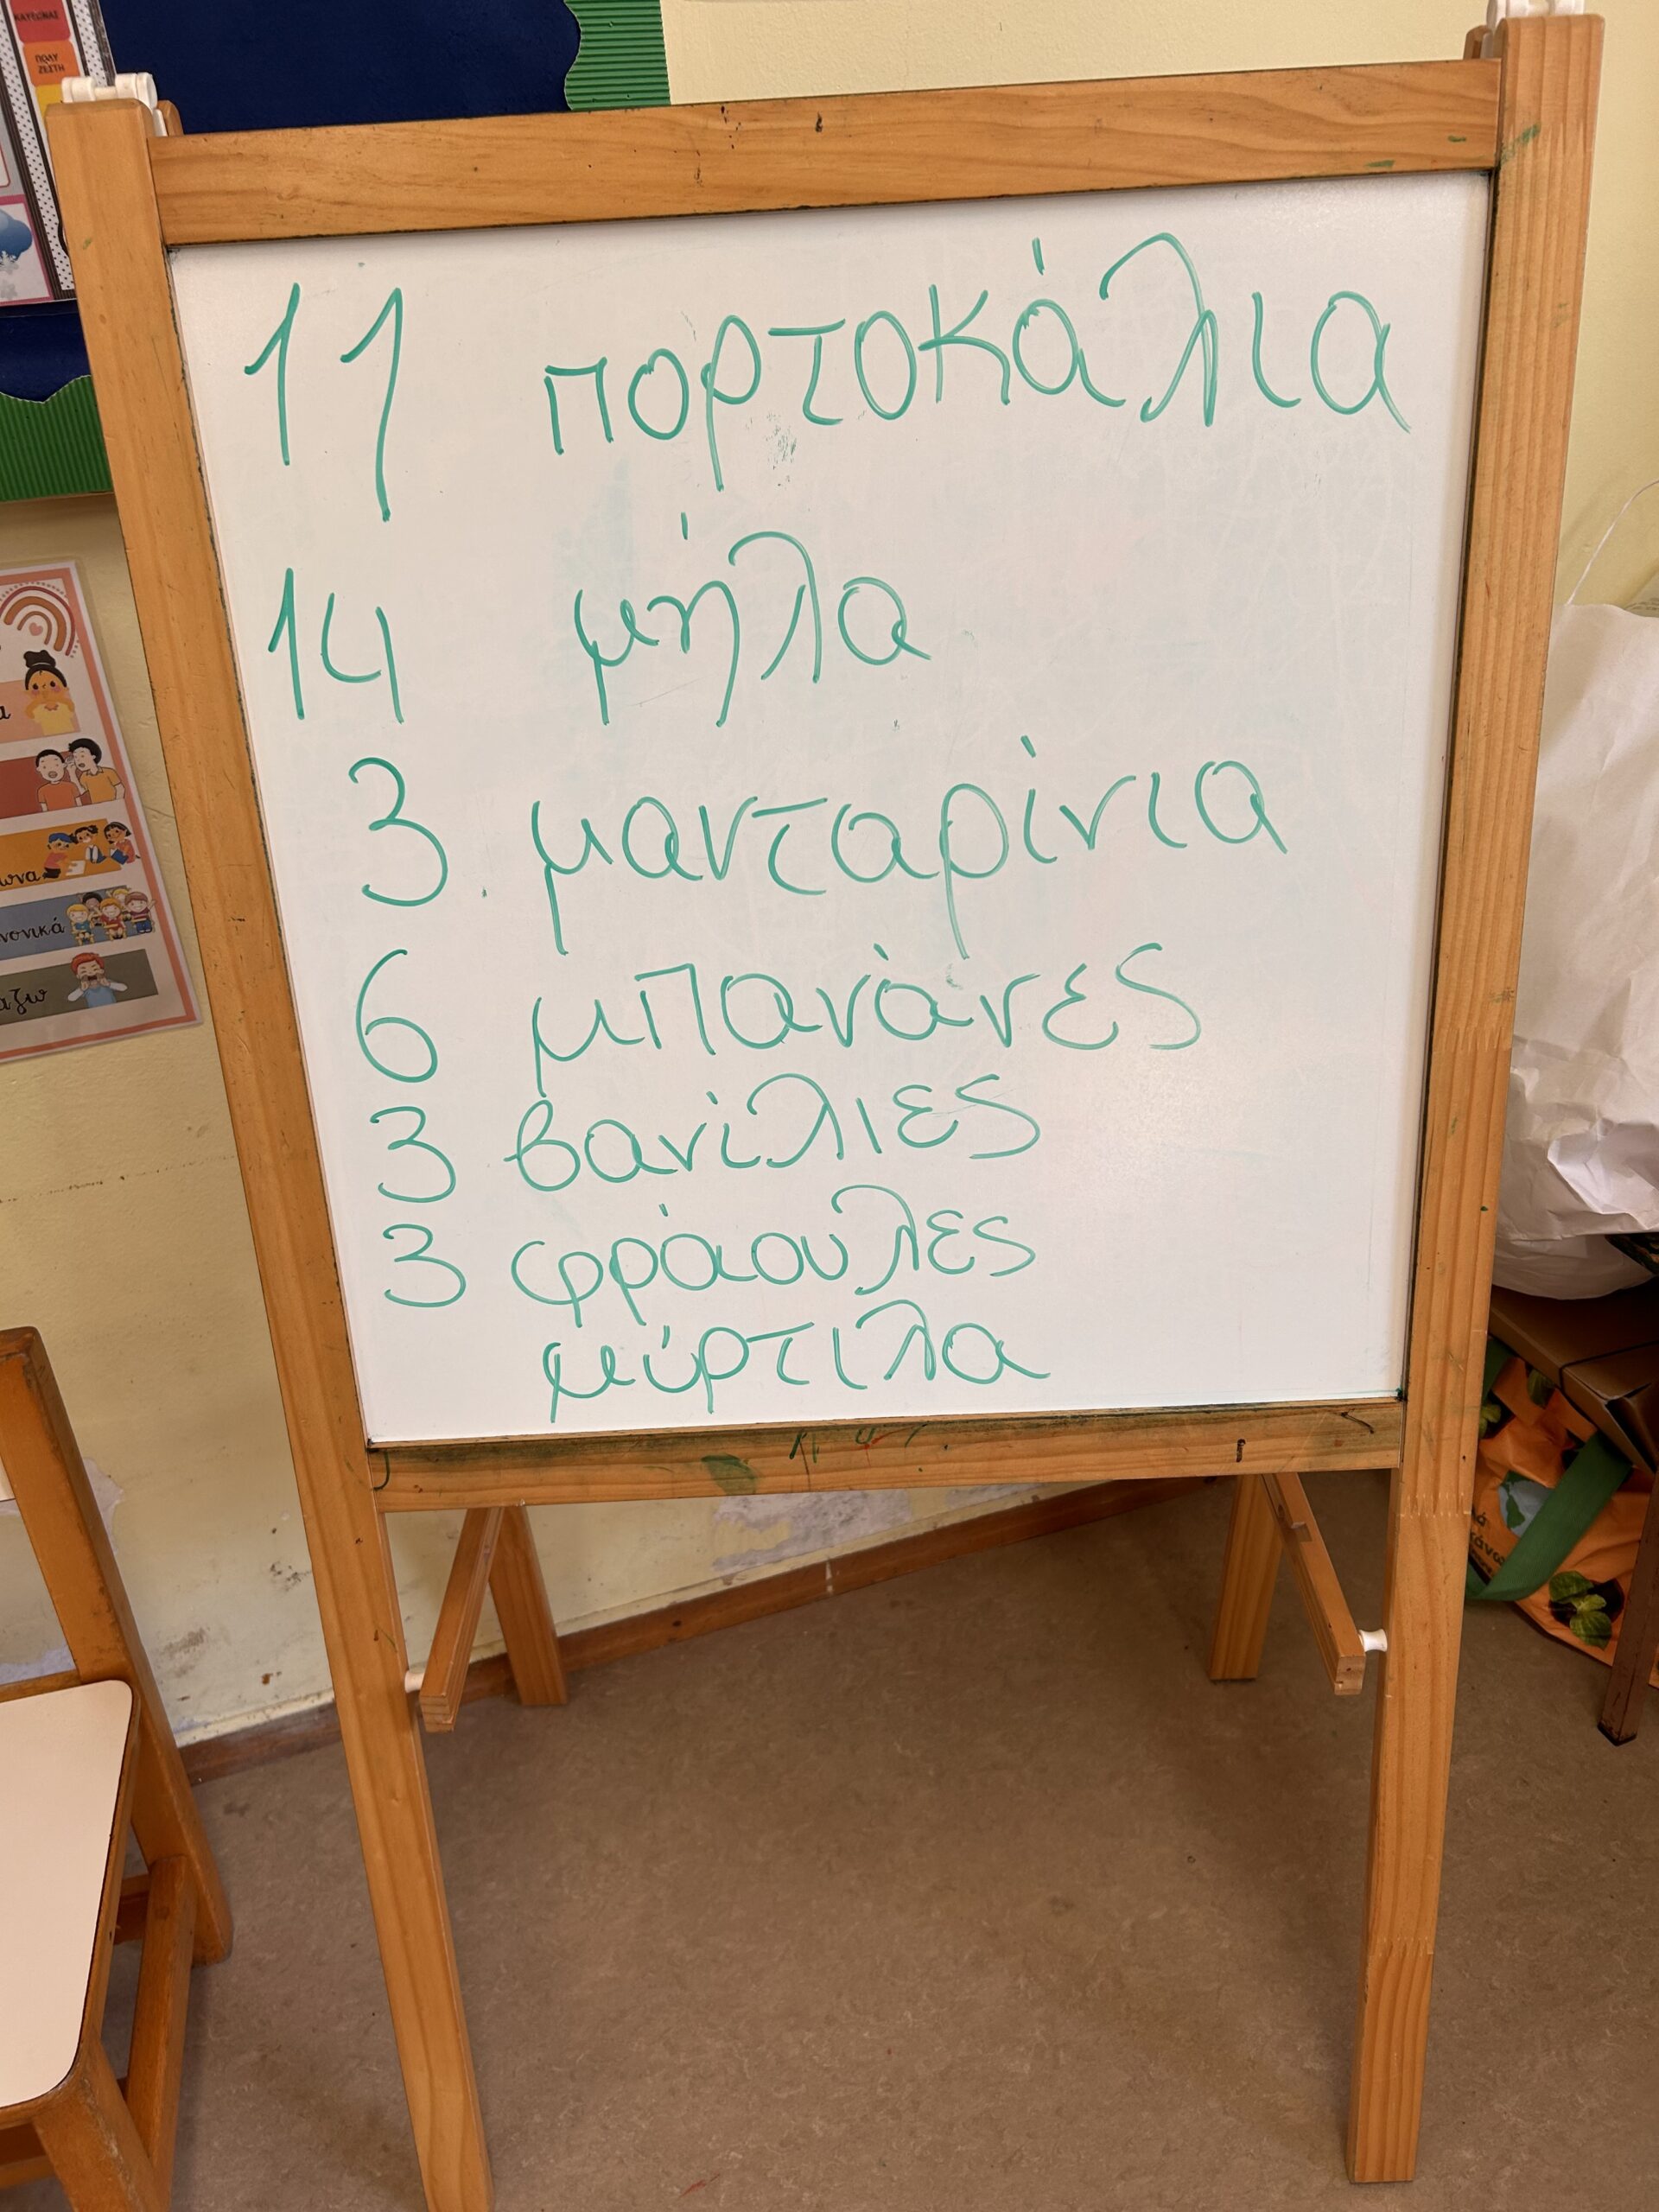 ΚΑΥΣΩΝΑΣ
ΠΟΛΥ
ΖΕΣΤΗ
11 πορτοκάλια
14 μήλα
3 μανταρίνια
6 μπανάνες
3 βανίλιες
3 φράουλες
μύρτιλα